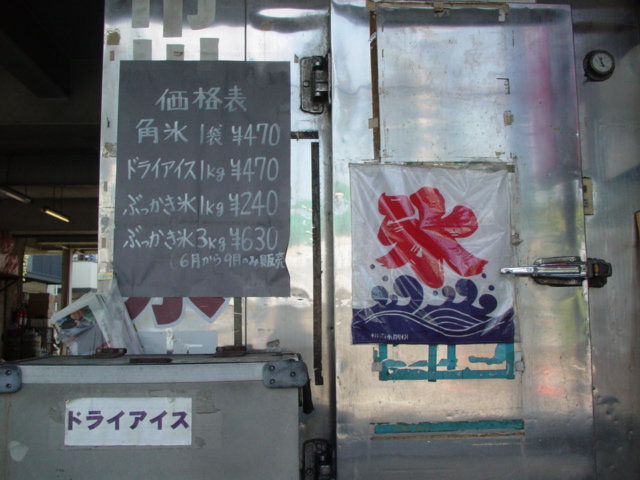 価格表
角氷 1袋 ¥470
ドライアイス 1kg ¥470
ぶっかき氷 1kg ¥240
ぶっかき氷 3kg ¥630
(6月から9月のみ販売
氷
ドライアイス